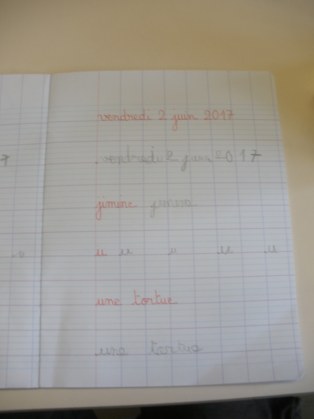 vendredi 2 juin 2017
vendredi 2 juin 2017
u u u u u
une tortue
une tortue